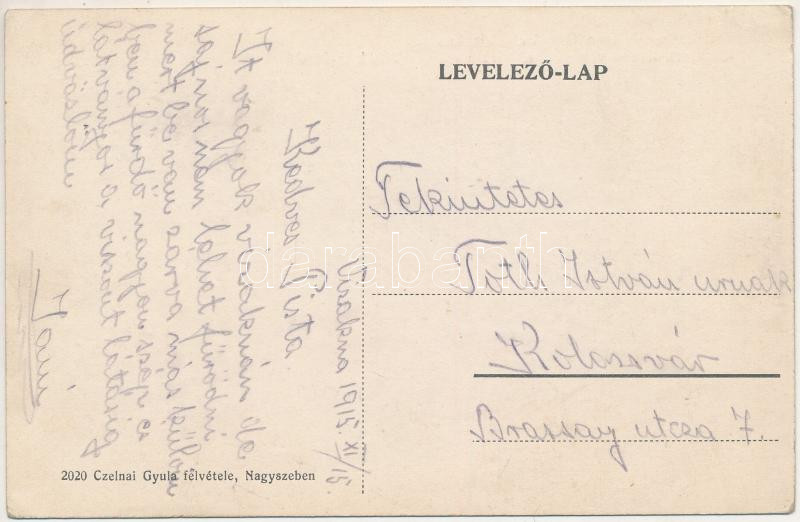 LEVELEZŐ-LAP
Vizakna 1915. XI/15.
Kedves Pista.
Itt vagyok vizaknán de
sajnos nem lehet fürödni
mert be van zárva más külön
ben a fürdő nagyon szép és
látványos a viszont látásig
üdvözlöm
Jani
Tekintetes
Toth István urnak
Kolozsvár
Brassay utcza 7.
2020 Czelnai Gyula felvétele, Nagyszeben
darabanth